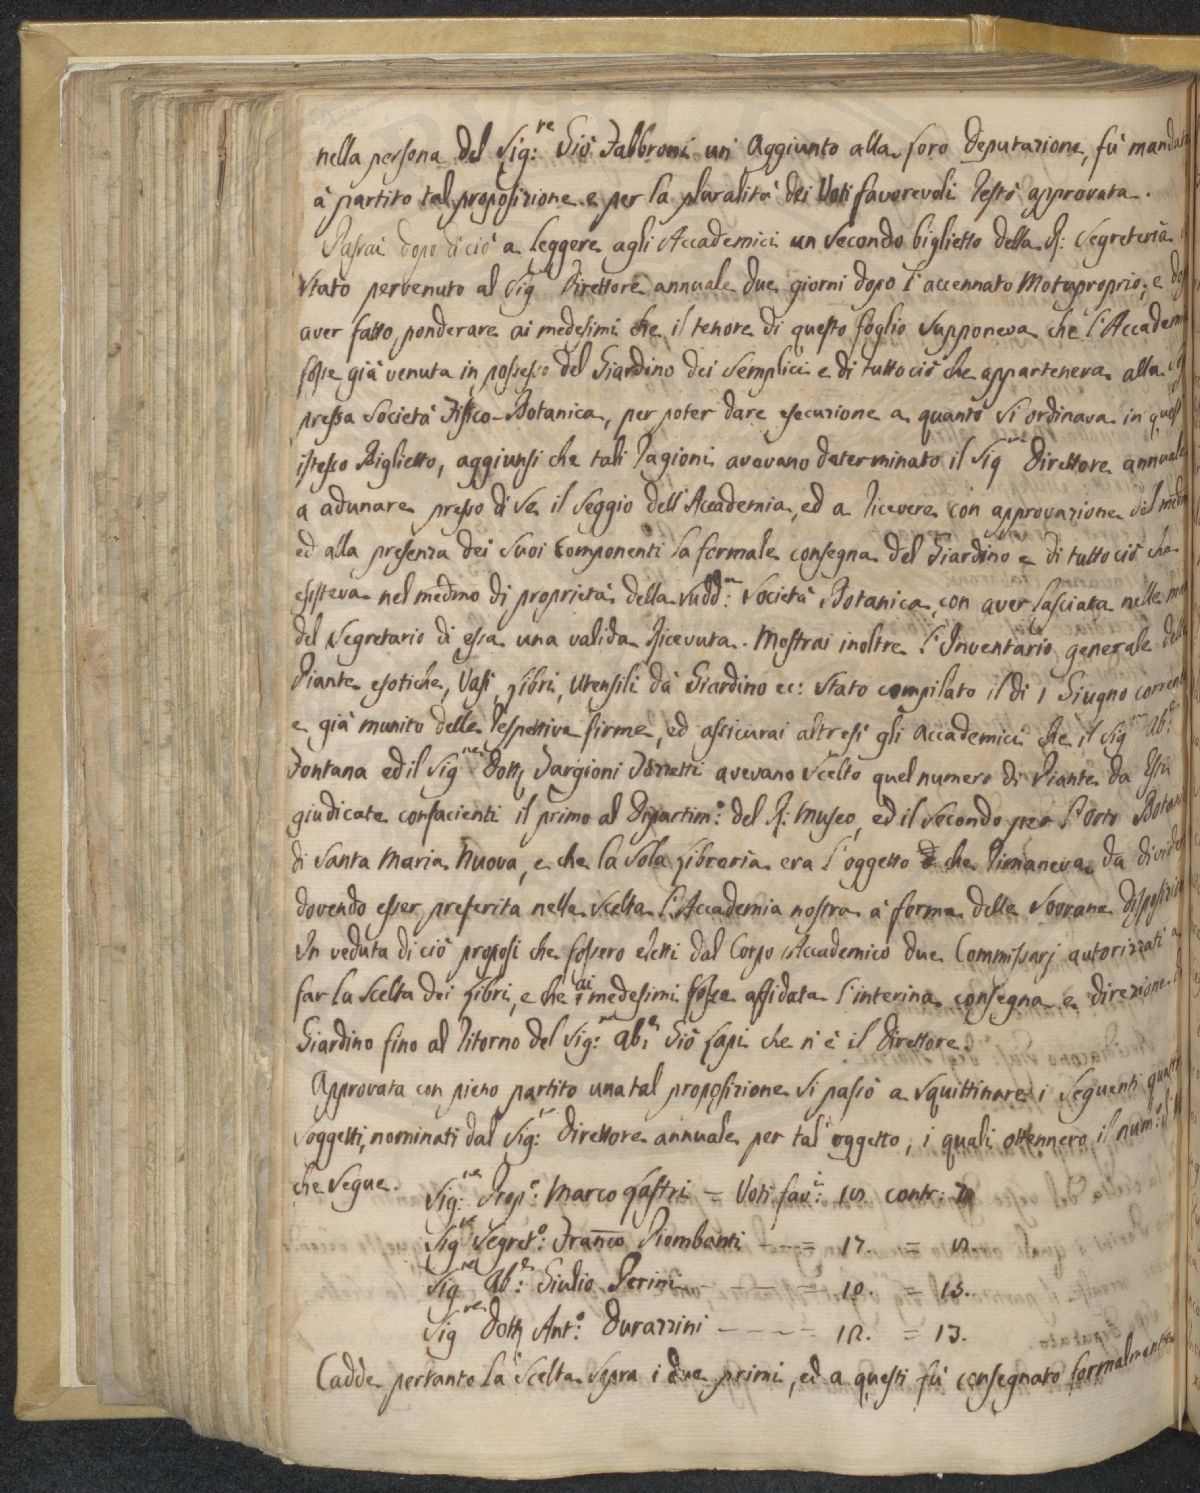 nella persona del Sig:re Giò Fabbroni un Aggiunto alla loro Deputazione, fù manda
à partito tal proposizione e per la pluralità dei Voti favorevoli restò approvata.
Passai dopo di ciò a leggere agli Accademici un secondo biglietto della R: Segreteria
stato pervenuto al Sigre Direttore annuale due giorni dopo l'accennato Motuproprio; e do
aver fatto ponderare ai medesimi che il tenore di questo foglio supponeva che l'Accadem
fosse già venuta in possesso del Giardino dei Semplici e di tutto ciò che apparteneva alla
pressa Società Fisico-Botanica, per poter dare esecuzione a quanto si ordinava in quest
istesso Biglietto, aggiunsi che tali ragioni avevano determinato il Sigre Direttore annuale
a adunare presso di se il Seggio dell'Accademia, ed a ricevere con approvazione del med
ed alla presenza dei suoi Componenti la formale consegna del Giardino e di tutto ciò che
esisteva nel medmo di proprietà della sudd:a Società Botanica, con aver lasciata nelle ma
del Segretario di essa una valida ricevuta. Mostrai inoltre l'Inventario generale delle
Piante esotiche, Vasi, Libri, Utensili da Giardino ec: stato compilato il dì 1 Giugno corrent
e già munito delle respettive firme, ed assicurai altresì gli Accademici che il Sigre Ab:e
Fontana ed il Sigre Dott Targioni Tozzetti avevano scelto quel numero di Piante da Essi
giudicate confacienti il primo al Dipartim:o del R: Museo, ed il secondo per l'Orto Botan
di Santa Maria Nuova, e che la sola Libreria era l'oggetto che rimaneva da divider
dovendo esser preferita nella scelta l'Accademia nostra a forma delle Sovrane disposizio
In veduta di ciò proposi che fossero eletti dal Corpo Accademico due Commissarj autorizzati a
far la scelta dei Libri, e che ai medesimi fosse affidata l'interina consegna e direzione
Giardino fino al ritorno del Sig:re Ab:e Giò Lapi che n'è il Direttore.
Approvata con pieno partito una tal proposizione si passò a squittinare i seguenti quattr
soggetti, nominati dal Sig:r Direttore annuale per tal oggetto, i quali ottennero il num:o di
che segue.
Sig:re Prop:o Marco Lastri = Voti fav:i 18. contr: 7
Sigre Segret:o Franco Piombanti --- = 17. = 8.
Sigre Ab:e Giulio Perini - - - - = 10. = 15.
Sigre Dott Ant:o Durazzini - - - - = 12. = 13.
Cadde pertanto la scelta sopra i due primi, ed a questi fù consegnato formalmente